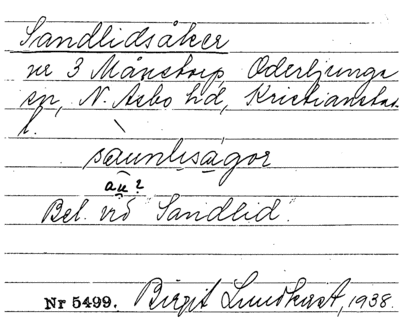 Sandlidsåker
nr 3 Månstorp Oderljunga
sn, N. Åsbo hd, Kristianstads
l.
saunlisågor
au?
Bel. vid "Sandlid".
Nr 5499. Birgit Lundkvist, 1938.